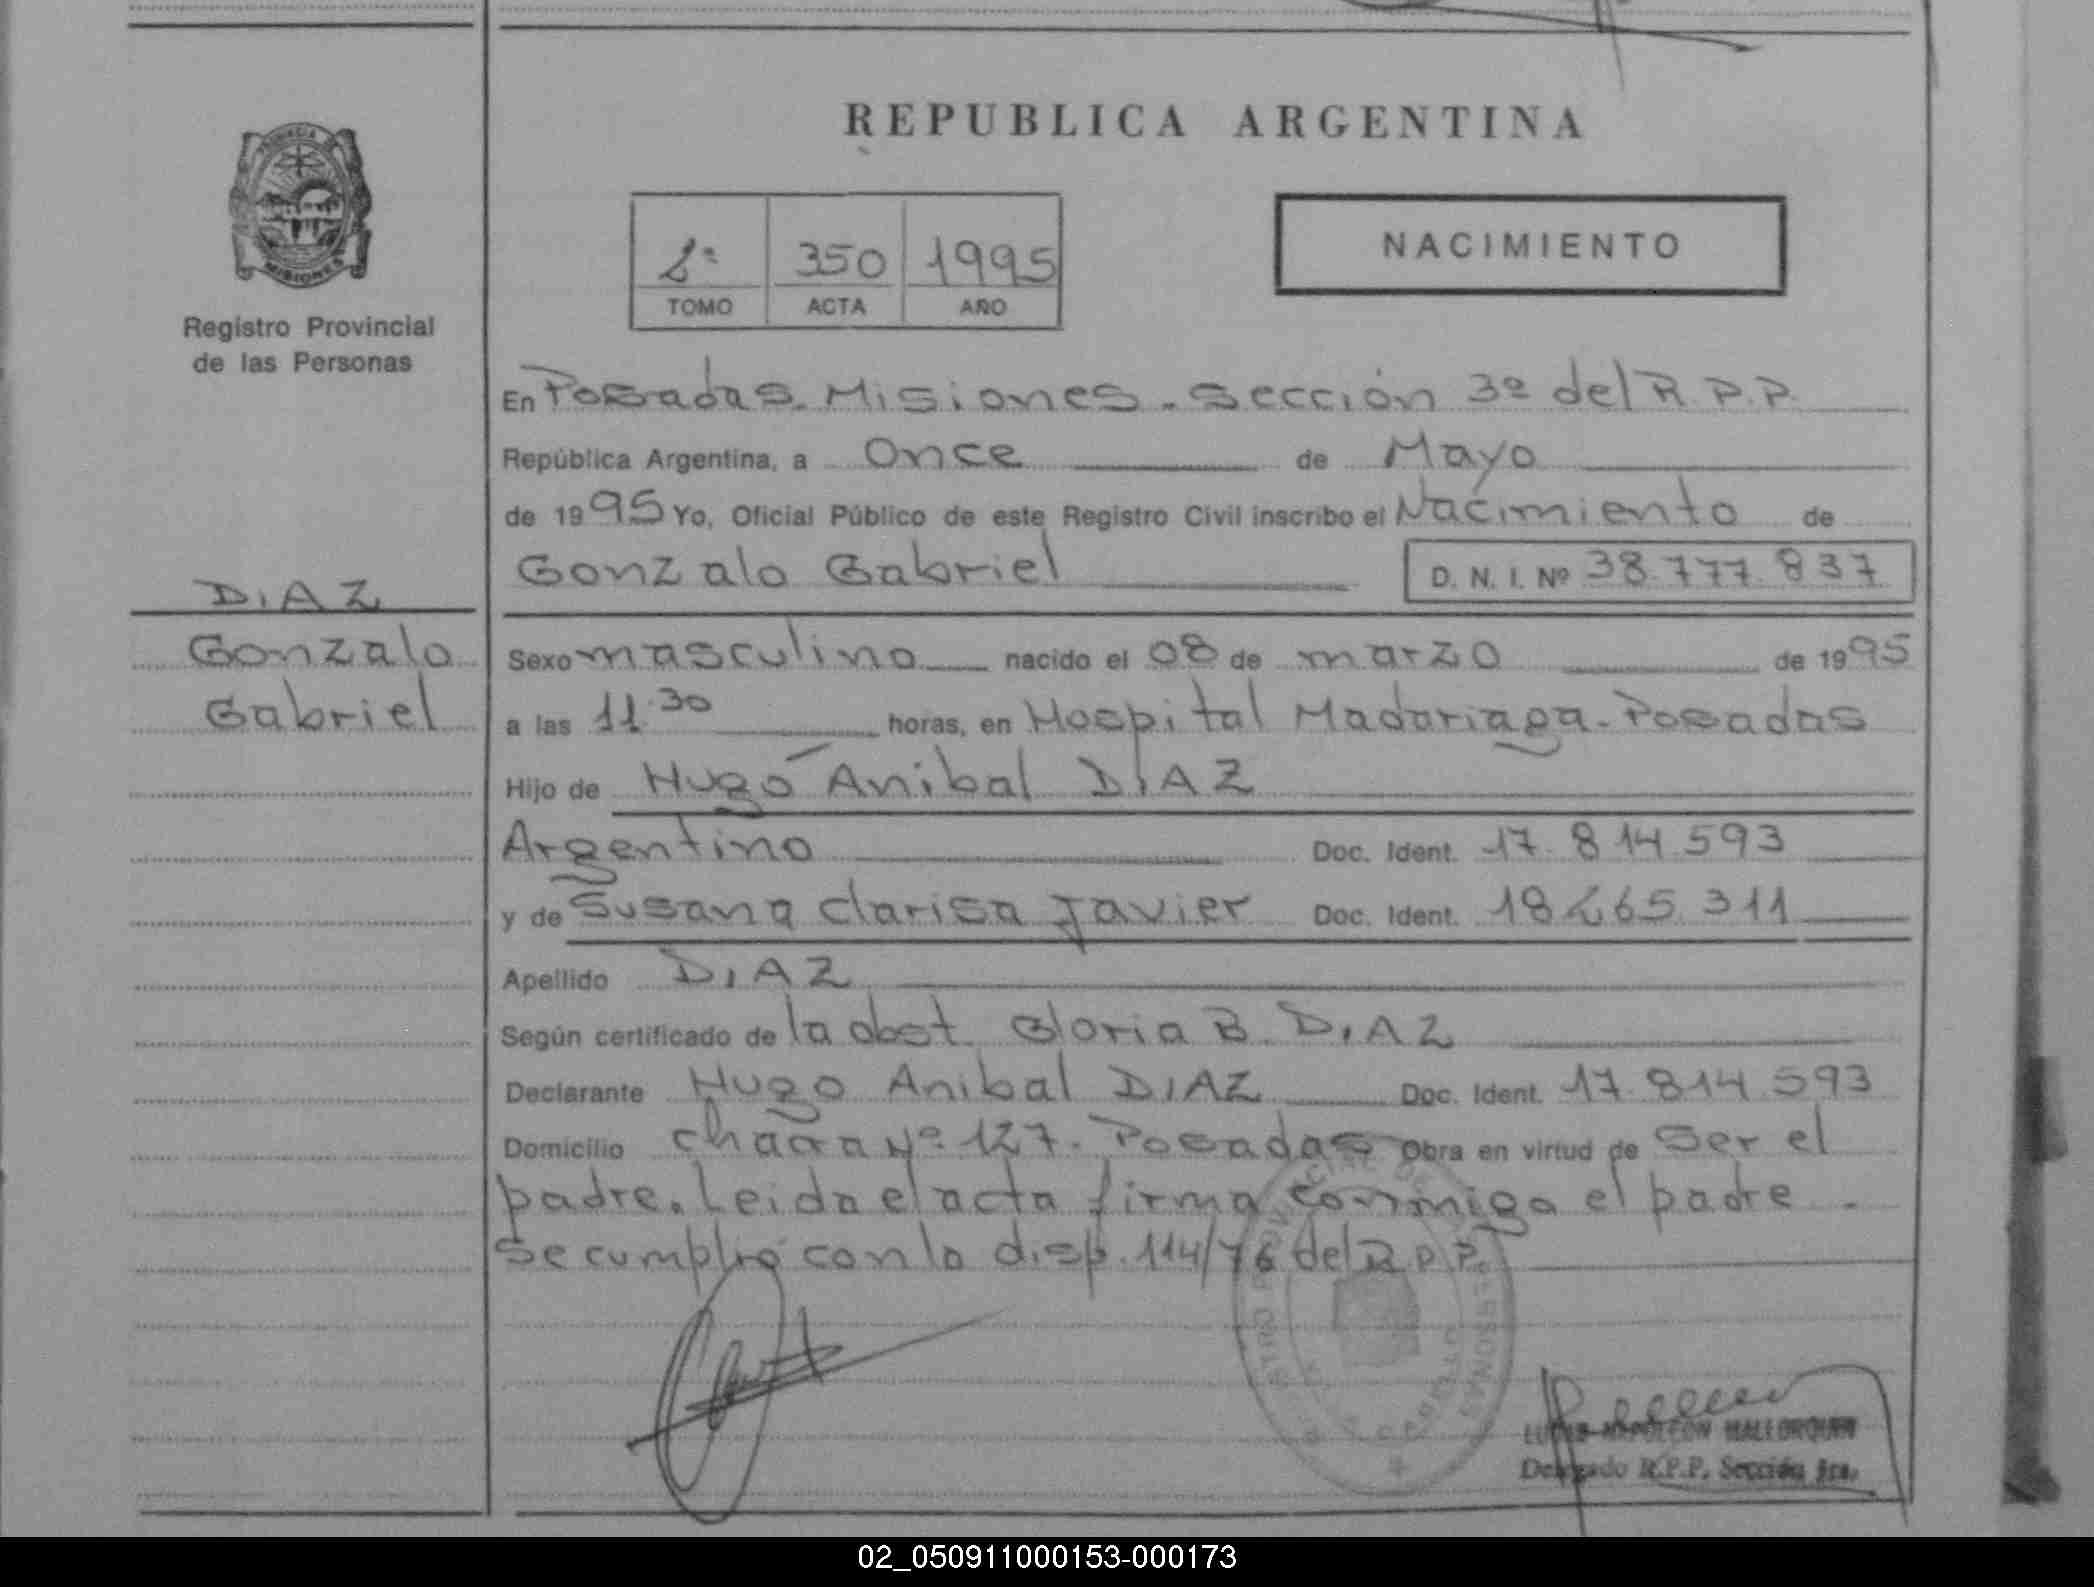 REPUBLICA ARGENTINA
PROVINCIA DE
MISIONES
Registro Provincial
de las Personas
2º 350 1995
TOMO ACTA AÑO
NACIMIENTO
En Posadas. Misiones. Sección 3º del R.P.P.
República Argentina, a Once de Mayo
de 1995 Yo, Oficial Público de este Registro Civil inscribo el Nacimiento de
Gonzalo Gabriel D. N. I. Nº 38.777.837
DIAZ
Gonzalo
Gabriel
Sexo masculino nacido el 08 de marzo de 1995
a las 11.30 horas, en Hospital Madariaga - Posadas
Hijo de Hugo Anibal DIAZ
Argentino Doc. Ident. 17.814.593
y de Susana Clarisa Javier Doc. Ident. 18.265.311
Apellido DIAZ
Según certificado de la obst. Gloria B. DIAZ
Declarante Hugo Anibal DIAZ Doc. Ident. 17.814.593
Domicilio chacra Nº 127. Posadas Obra en virtud de Ser el
padre. Leida el acta firma conmigo el padre.
Se cumplió con la disp. 114/76 del R.P.P.
NAPOLEON MALLORQUIN
Delegado R.P.P. Sección 3ra.
02_050911000153-000173